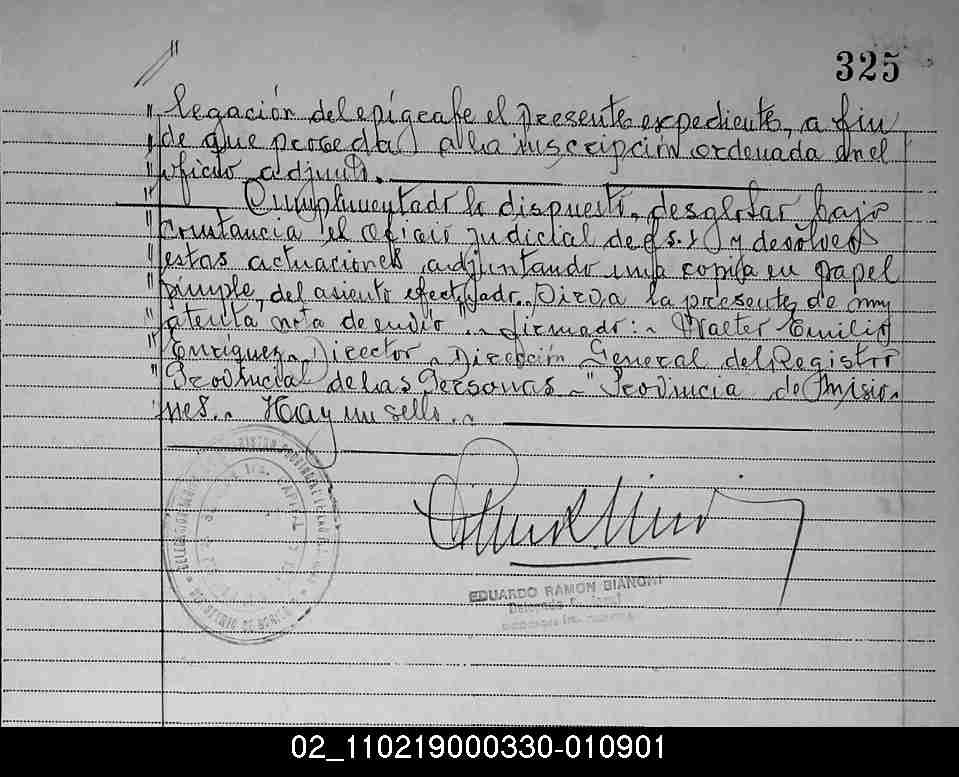 325
" legación del epígrafe el presente expediente, a fin
" de que proceda a la inscripción ordenada en el
" oficio adjunto.
" Cumplimentado lo dispuesto, desglosar bajo
" constancia el oficio judicial de fs. 1 y devolver
" estas actuaciones adjuntando una copia en papel
" simple, del asiento efectuado. Sirva la presente de muy
" atenta nota de envío ". firmado: Walter Emilio
" Enríquez. Director. Dirección General del Registro
" Provincial de las Personas. Provincia de Misio-
" nes. Hay un sello.
EDUARDO RAMON BIANCHI
02_110219000330-010901